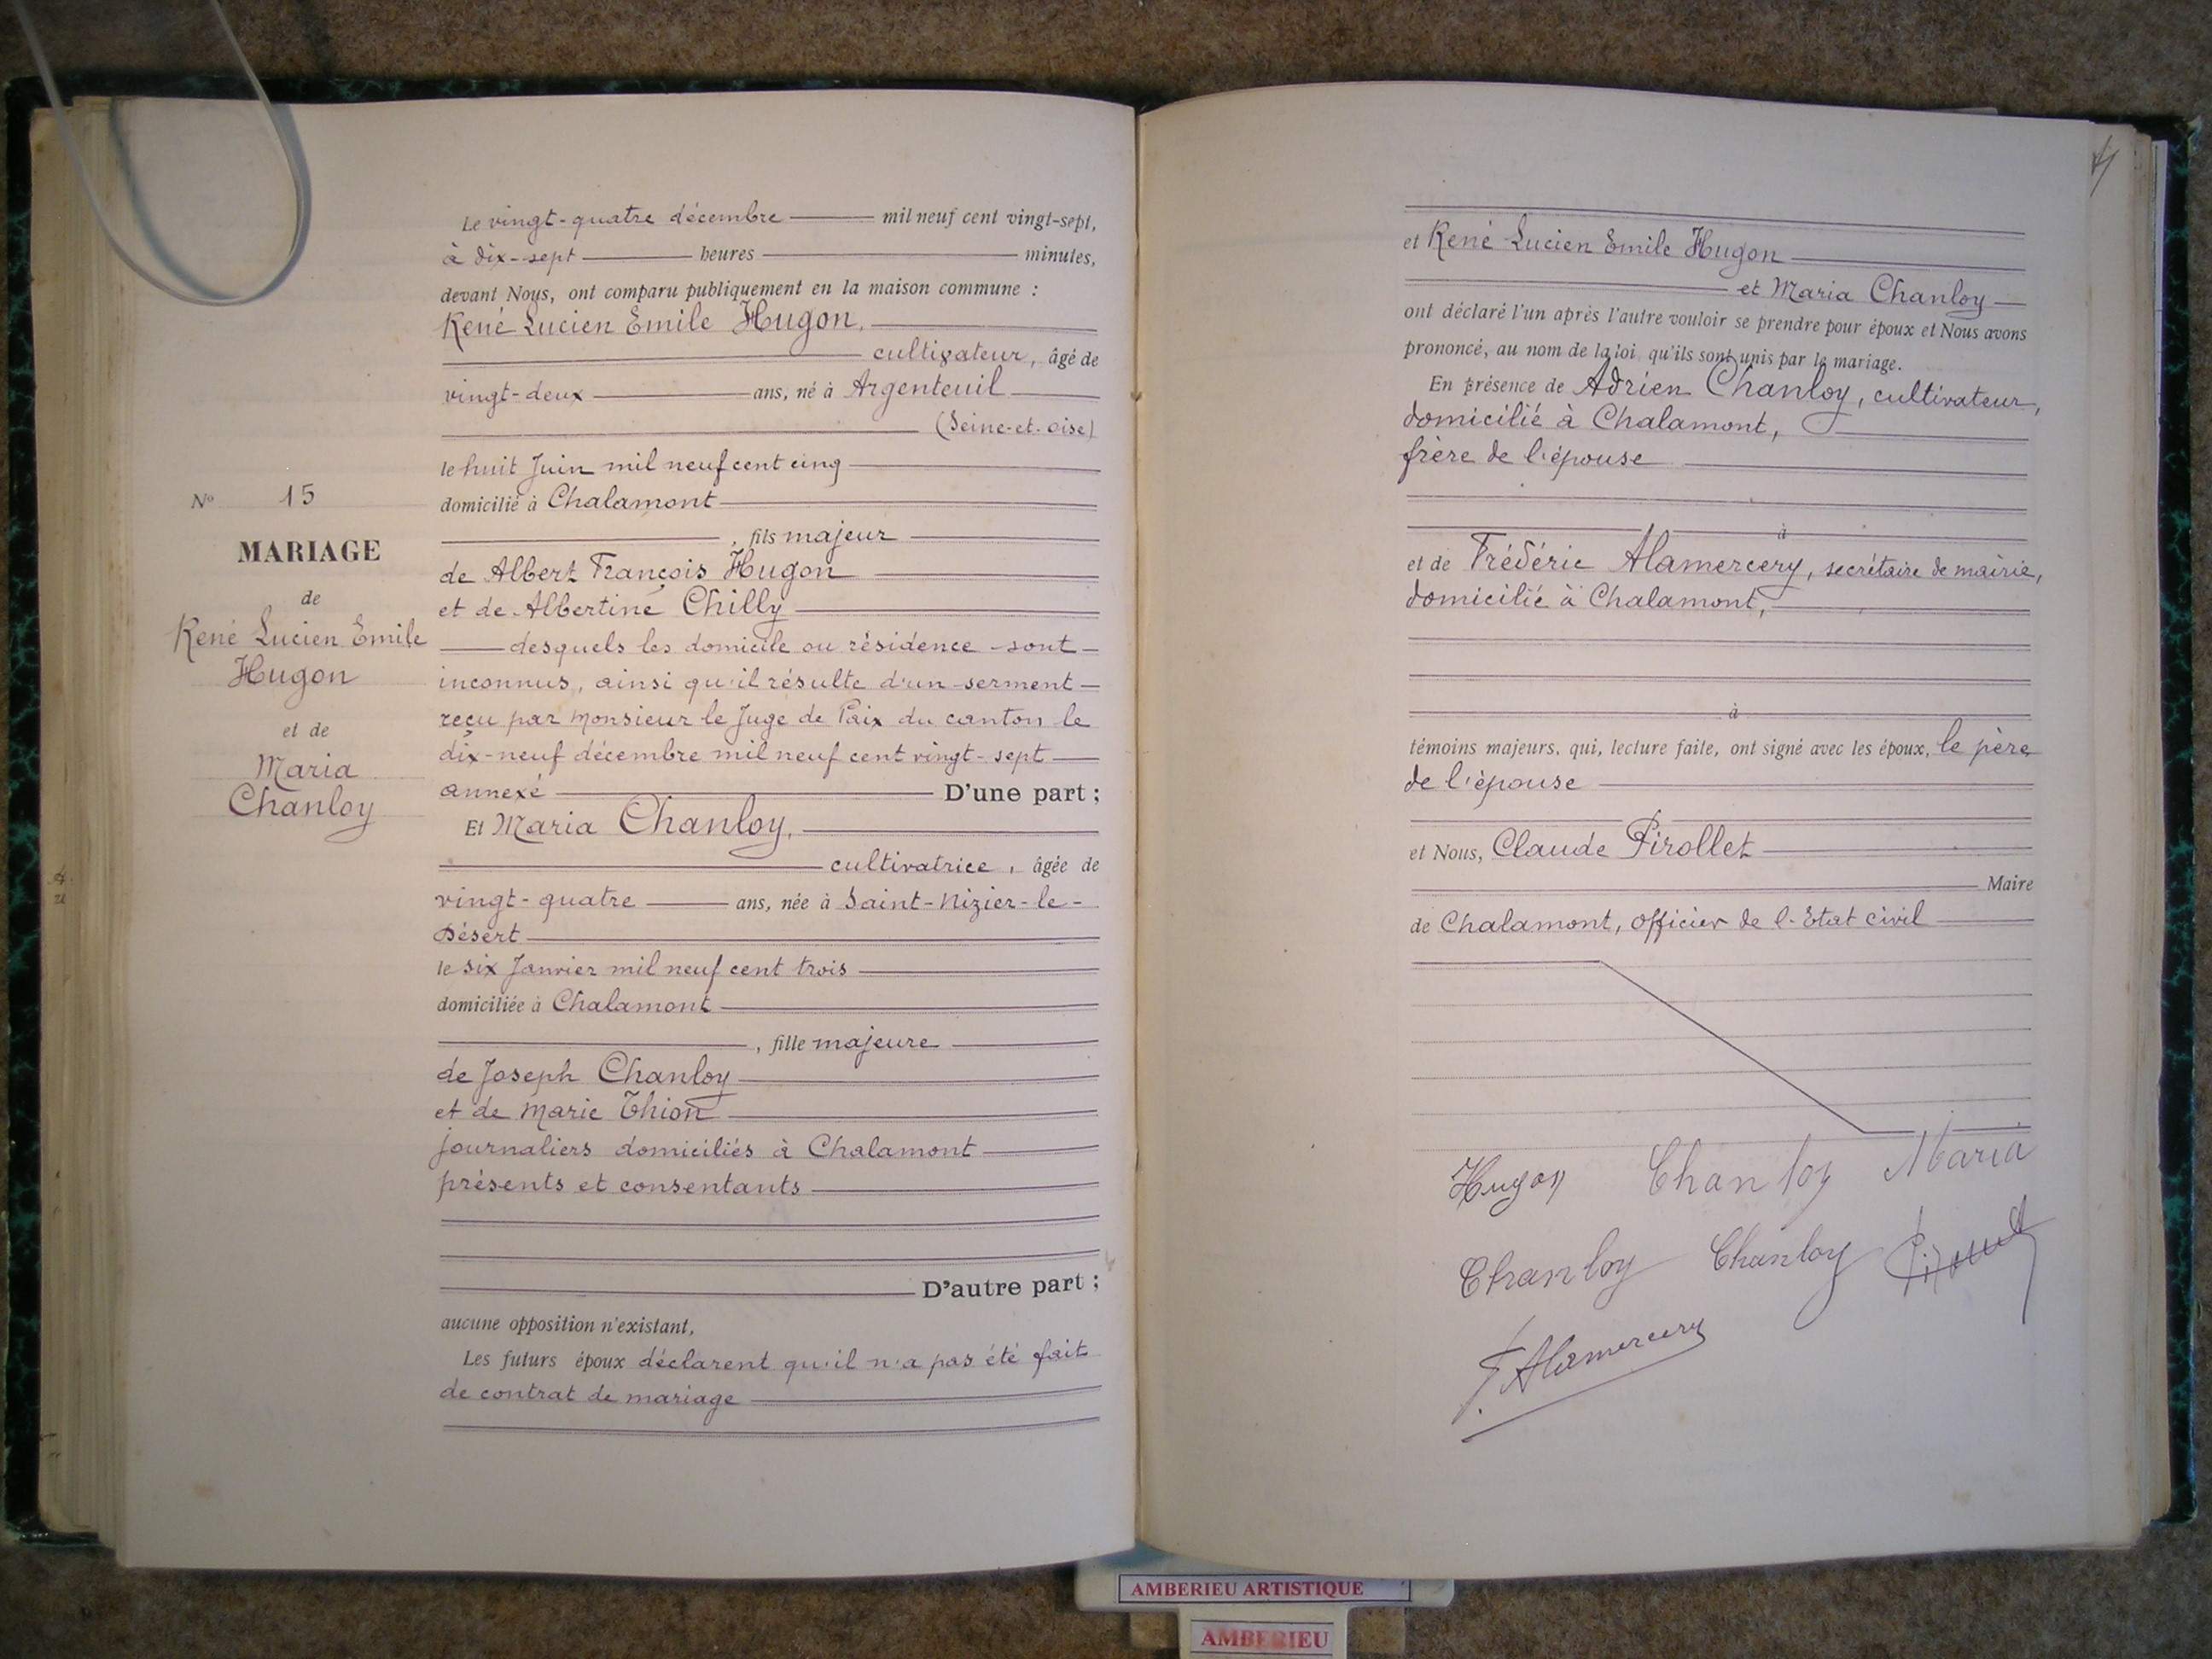 Le vingt-quatre décembre mil neuf cent vingt-sept,
à dix-sept heures minutes,
devant Nous, ont comparu publiquement en la maison commune :
René Lucien Emile Hugon,
cultivateur, âgé de
vingt-deux ans, né à Argenteuil
(Seine-et-oise)
le huit Juin mil neuf cent cinq
domicilié à Chalamont
, fils majeur
de Albert François Hugon
et de Albertine Chilly
desquels les domicile ou résidence sont
inconnus, ainsi qu'il résulte d'un serment
reçu par Monsieur le Juge de Paix du canton le
dix-neuf décembre mil neuf cent vingt-sept
annexé D'une part ;
Et Maria Chanloy,
cultivatrice, âgée de
vingt-quatre ans, née à Saint-Nizier-le-
Désert
le six Janvier mil neuf cent trois
domiciliée à Chalamont
, fille majeure
de Joseph Chanloy
et de Marie Thion
journaliers domiciliés à Chalamont
présents et consentants
D'autre part ;
aucune opposition n'existant,
Les futurs époux déclarent qu'il n'a pas été fait
de contrat de mariage
No 15
MARIAGE
de
René Lucien Emile
Hugon
et de
Maria
Chanloy
et René Lucien Emile Hugon
et Maria Chanloy
ont déclaré l'un après l'autre vouloir se prendre pour époux et Nous avons
prononcé, au nom de la loi, qu'ils sont unis par le mariage.
En présence de Adrien Chanloy, cultivateur,
domicilié à Chalamont,
frère de l'épouse
à
et de Frédéric Alamercery, secrétaire de mairie,
domicilié à Chalamont,
à
témoins majeurs, qui, lecture faite, ont signé avec les époux, le père
de l'épouse
et Nous, Claude Pirollet
Maire
de Chalamont, Officier de l'Etat civil
Hugon Chanloy Maria
Chanloy Chanloy Pirollet
F. Alamercery
AMBERIEU ARTISTIQUE
AMBERIEU